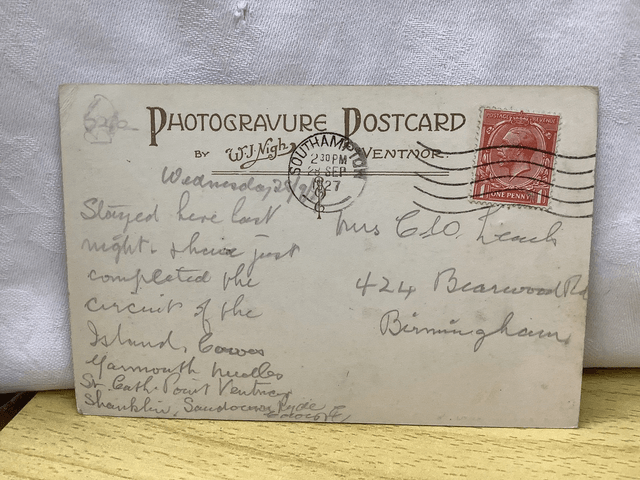 PHOTOGRAVURE POSTCARD
BY W.J. Nigh VENTNOR.
POSTAGE REVENUE
ONE PENNY
SOUTHAMPTON
2 30 PM
28 SEP
1927
Wednesday 28/9/27
Stayed here last
night. & have just
completed the
circuit of the
Island, Cowes
Yarmouth Needles
St. Cath. Point Ventnor
Shanklin, Sandown Ryde
Mrs C. W. Leach
424 Bearwood Rd
Birmingham